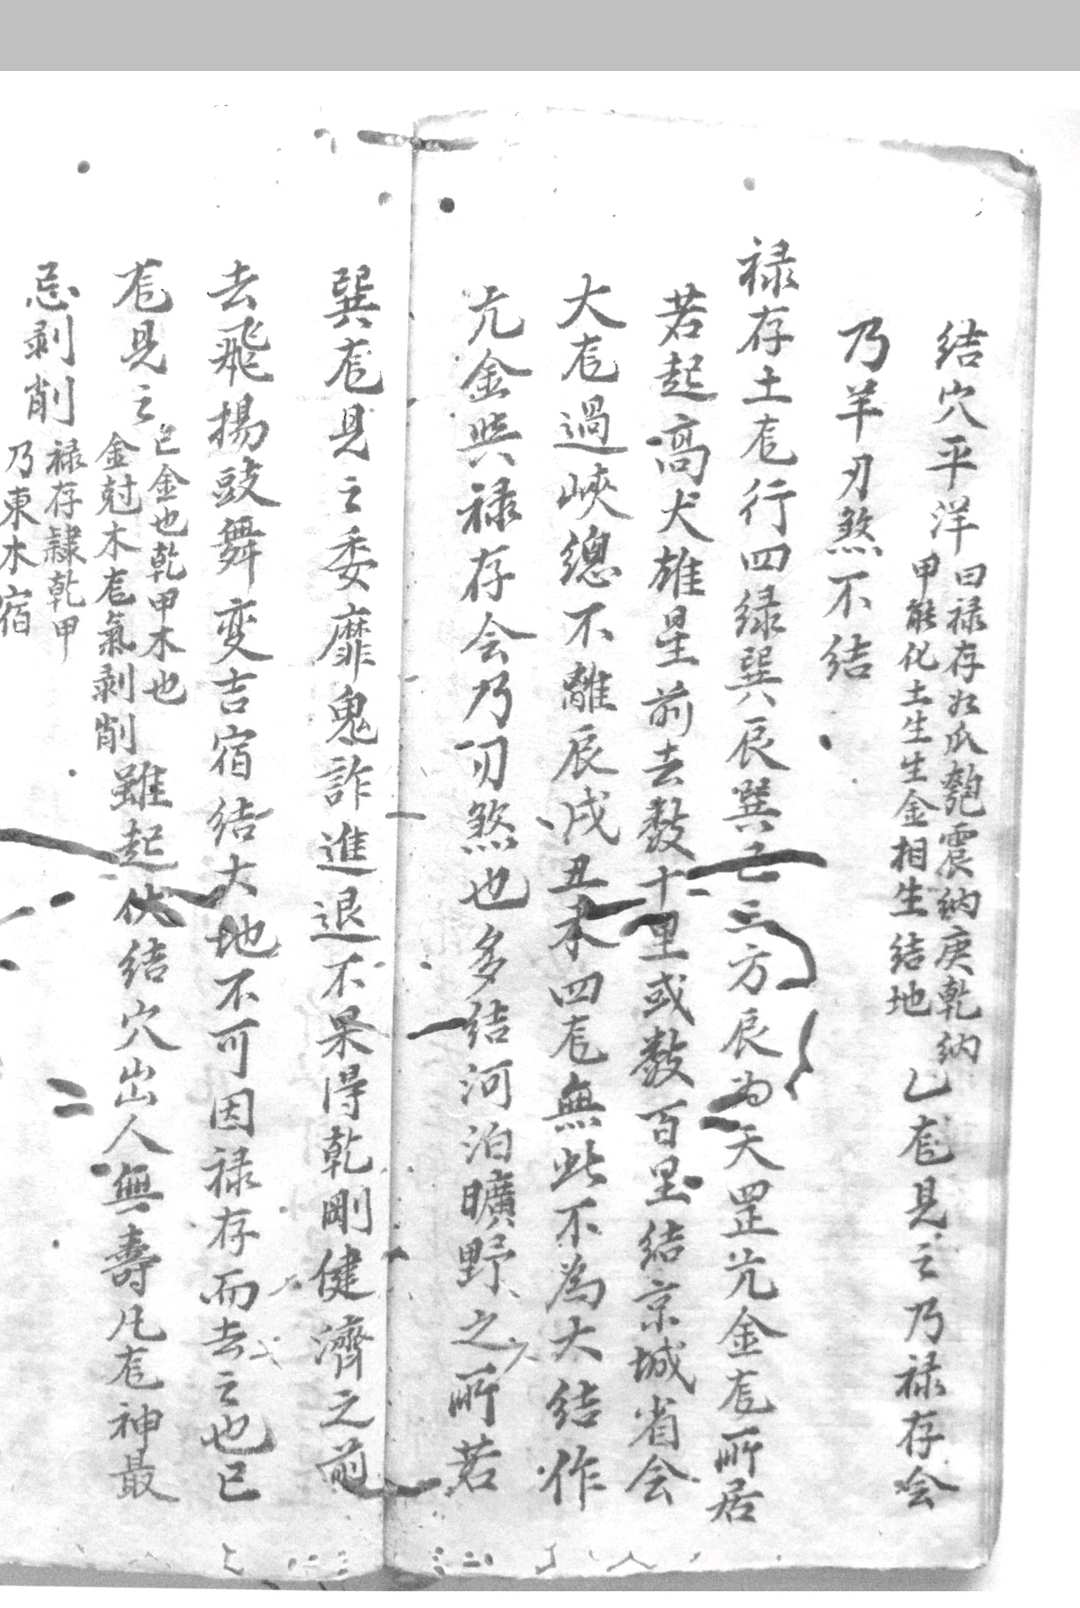 結穴平洋曰禄存如瓜匏震納庚乾納
甲能化土生生金相生結地乙龙見之乃禄存会
乃羊刃煞不結
禄存土龙行四绿巽辰巽巳三方辰为天罡亢金龙所居
若起高大雄星前去数十里或数百里結京城省会
大龙過峽總不離辰戌丑未四龙無此不為大結作
亢金與禄存会乃刃煞也多结河泊曠野之所若
巽龙見之委靡鬼詐進退不果得乾剛健濟之前
去飛揚鼓舞变吉宿结大地不可因禄存而去之也巳
龙見之巳金也乾甲木也
金尅木龙氣剥削雖起伏结穴出人無壽凡龙神最
忌剥削禄存隸乾甲
乃東木宿